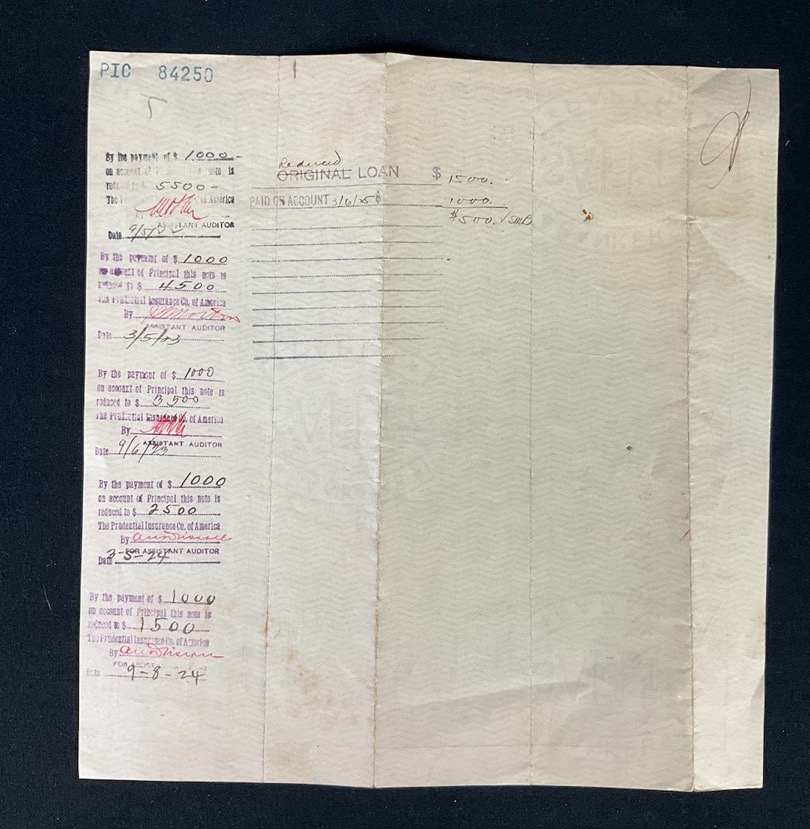 PIC 84250
By the payment of $ 1000-
on account of note is
reduced to $ 5500-
The of America
ASSISTANT AUDITOR
Date 9/5/22
By the payment of $ 1000
on account of Principal this note is
reduced to $ 4500
The Prudential Insurance Co. of America
By
ASSISTANT AUDITOR
Date 3/5/23
By the payment of $ 1000
on account of Principal this note is
reduced to $ 3500
The Prudential Insurance Co. of America
By
ASSISTANT AUDITOR
Date 9/6/23
By the payment of $ 1000
on account of Principal this note is
reduced to $ 2500
The Prudential Insurance Co. of America
By
FOR ASSISTANT AUDITOR
Date 3-5-24
By the payment of $ 1000
on account of Principal this note is
reduced to $ 1500
The Prudential Insurance Co. of America
By
FOR
Date 9-8-24
Reduced
ORIGINAL LOAN $ 1500.
PAID ON ACCOUNT 3/6/25 $ 1000.
$500.